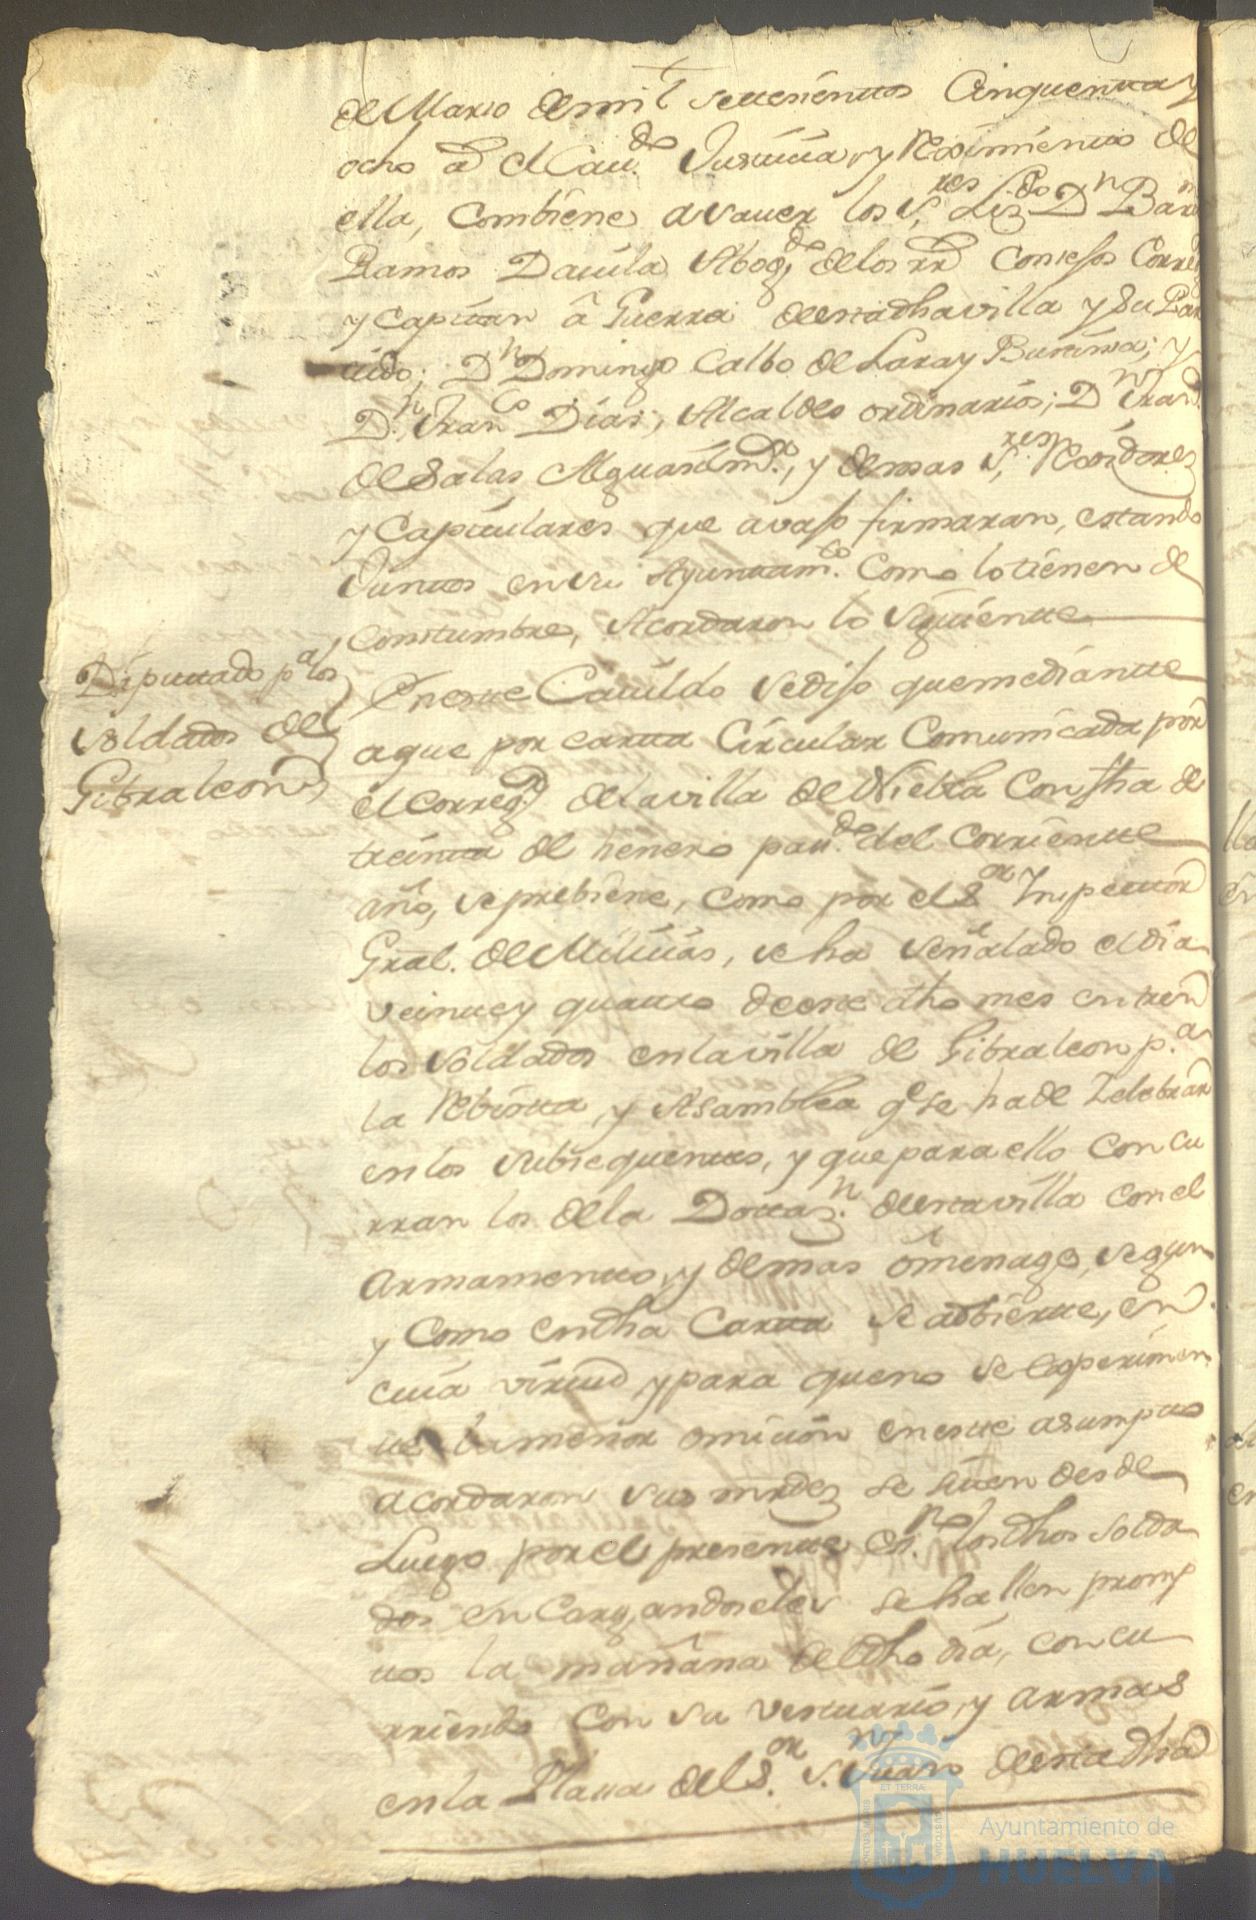 de Marzo de mil settesientos Cinquenta y
ocho as. el Cav.do Justicia, y Reximiento de
ella, combiene a saver los S.res Liz.do D.n Bar.me
Ramos Davila Abog.do de los rr.s Consejos Corre.r
y Capitan â Guerra de esta dha villa y su Par
tido; D.n Domingo Calbo de Lara y Buitima; y
D.n Fran.co Dias, Alcaldes ordinarios; D.n Fran.co
de Salas Alguasil m.or, y demas S.res Rexidores
y Capitulares que avajo firmaran, estando
Juntos en su Ayuntam.to Como lo tienen de
Constumbre, Acordaron lo Siguiente
Diputtado p.a los
Soldados de
Gibraleon
En este Cavildo se dijo que mediante
a que por carta Circular Comunicada por
el Correg.r de la villa de Niebla Con fha de
treinta de henero pau.do del Corriente
año, se prebiene, como por el S.or Inspector
Gral. de Milicias, se ha señalado el dia
veinte y quatro de este dho mes entren
los Soldados en la villa de Gibraleon p.a
la Rebista, y Asamblea q.e se ha de Zelebrar
en los subsequentes, y que para ello Concu
rran los de la Dottaz.n de esta villa con el
Armamento, y demas omenage, segun
y Como en dha Carta se adbierte, en
cuia virtud y para que no se experimen
te la menor omicion en este asumpto
acordaron sus mrdes se siten desde
Luego por el presente es.no los dhos Solda
dos en Cargandoseles se hallen promp
tos la mañana de dho dia, concu
rriendo con su vestuario, y armas
en la Plaza del S.or S.n Juan de esta dha
Ayuntamiento de
HUELVA